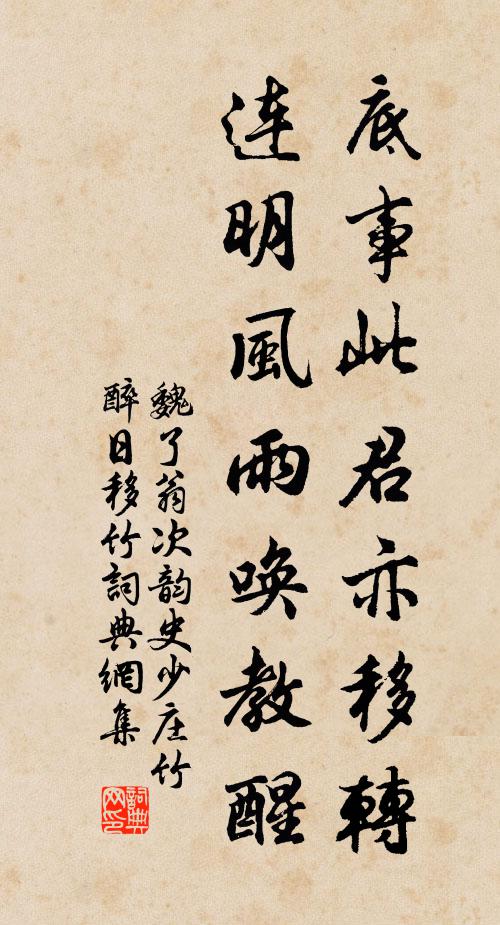 底事此君亦移轉
連明風雨喚教醒
魏了翁次韵史少庄竹
醉日移竹詞典網集
詞典网印